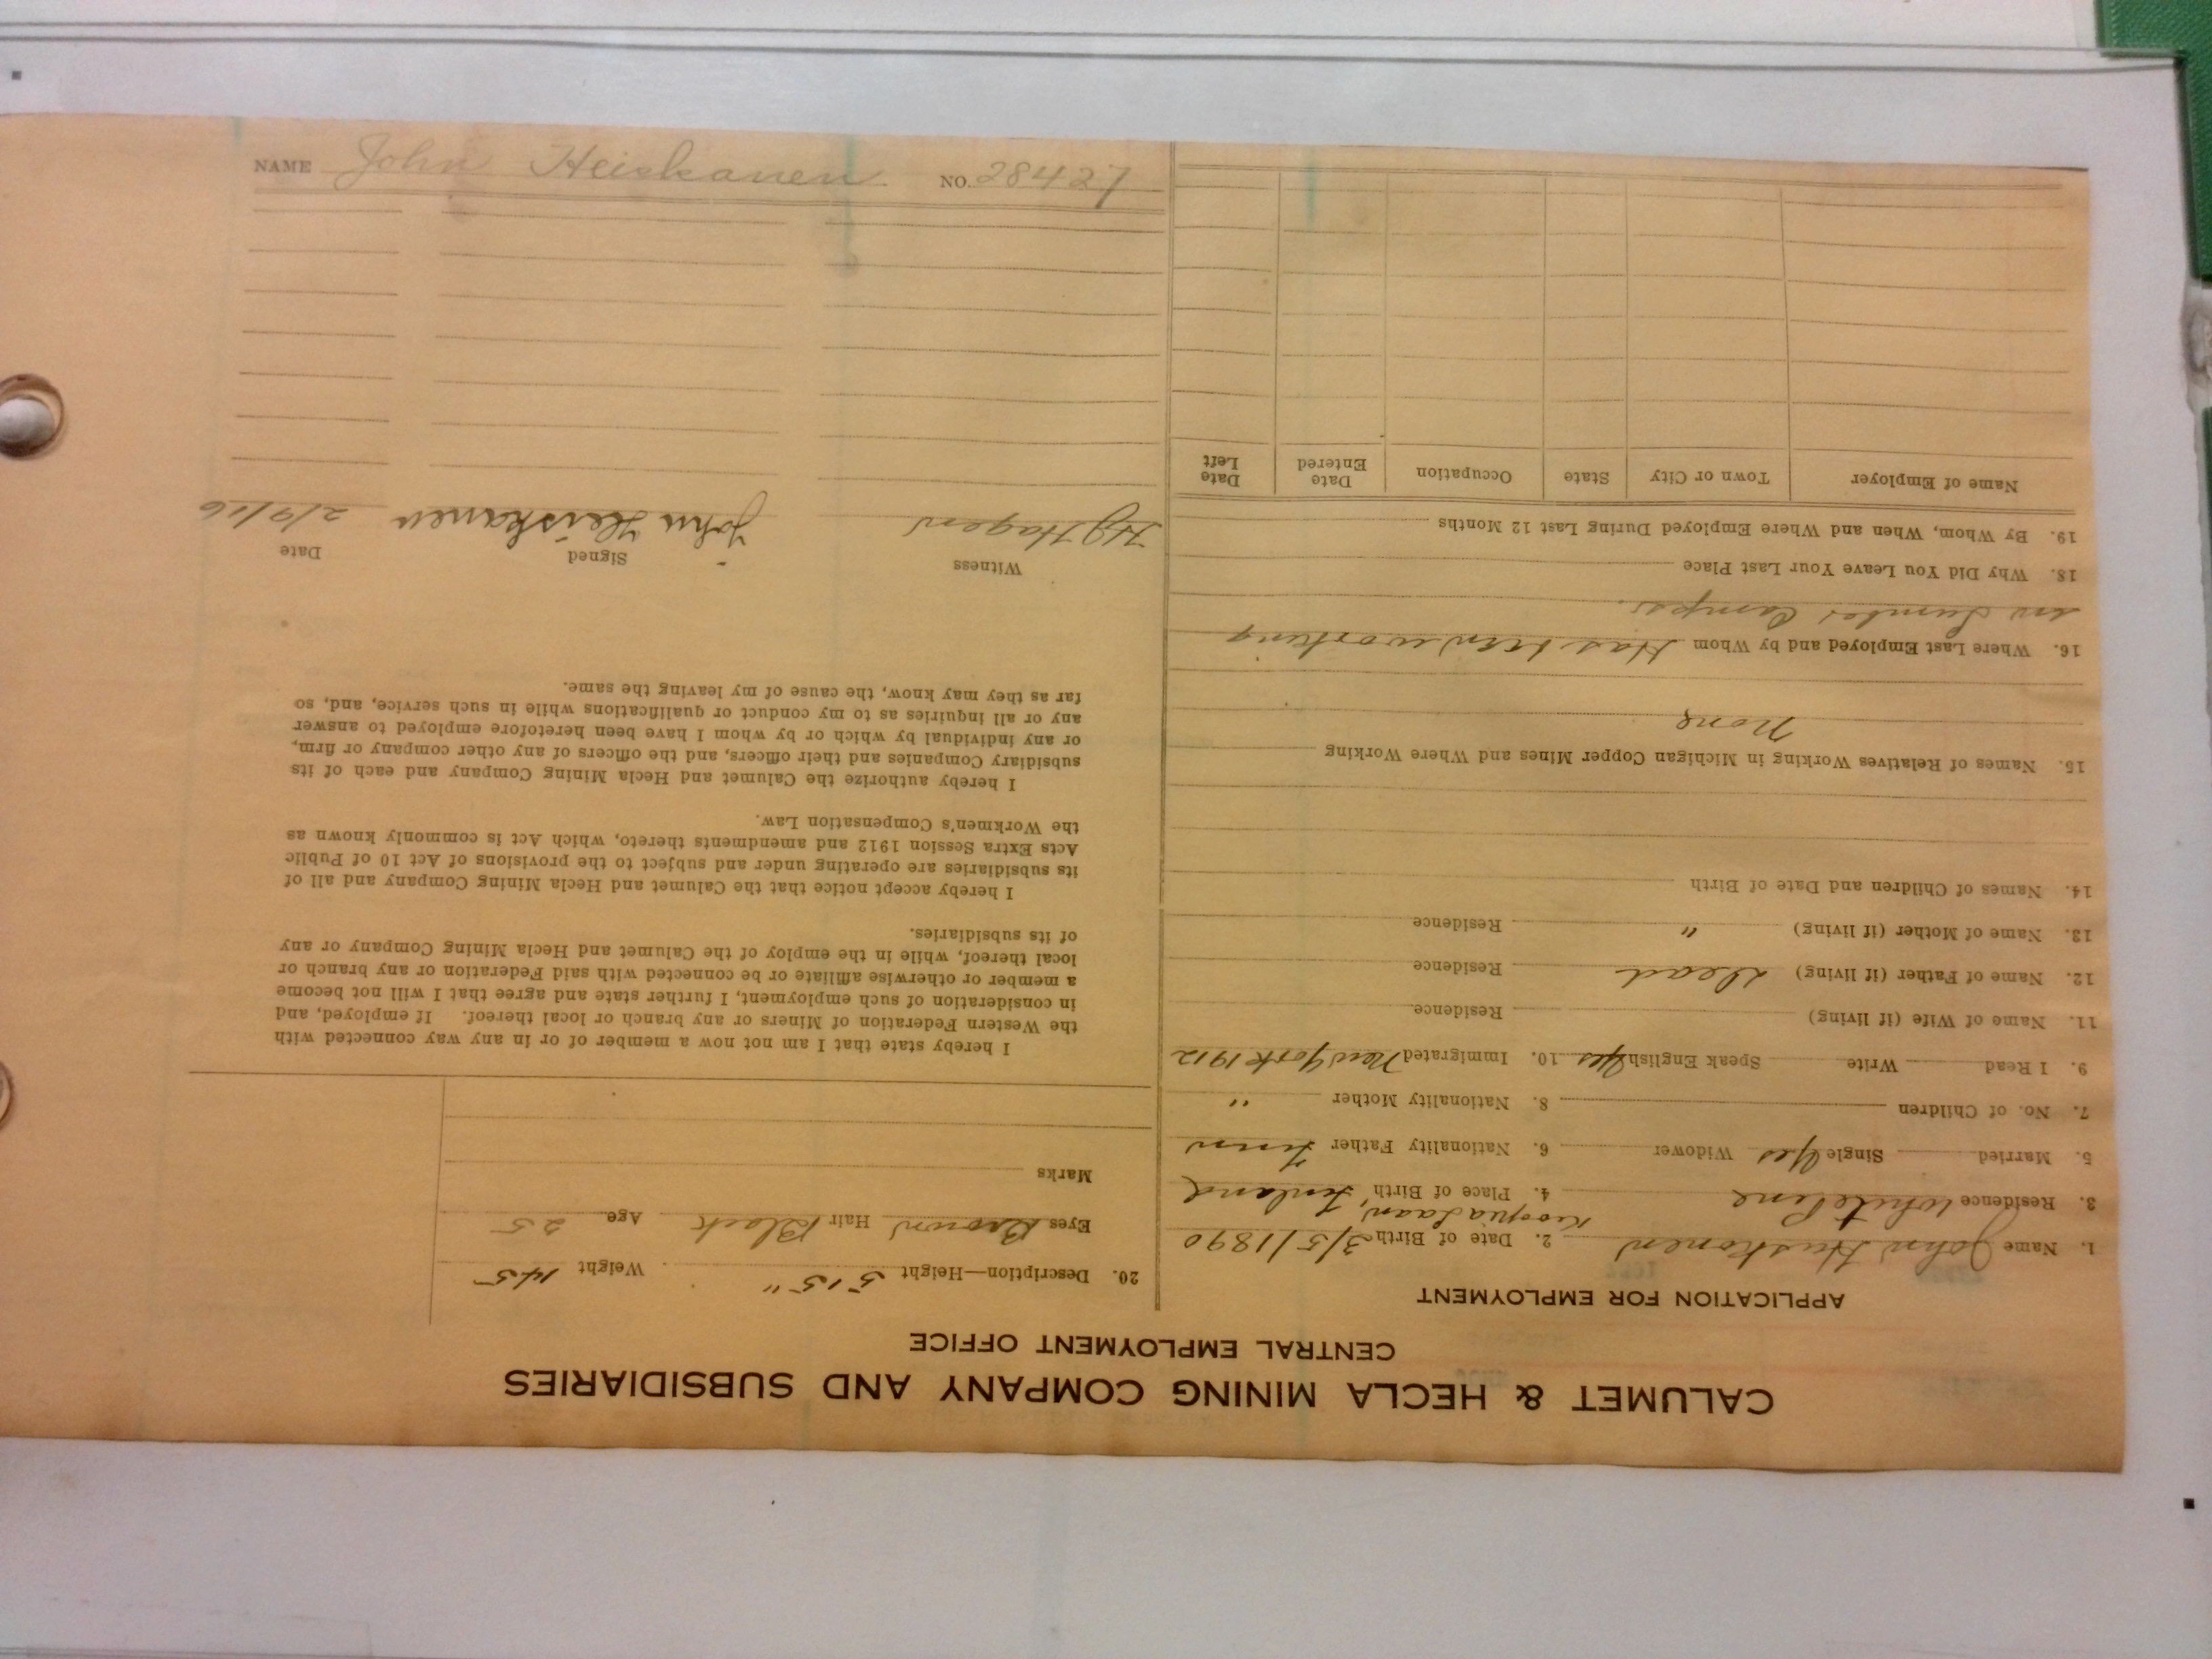 CALUMET & HECLA MINING COMPANY AND SUBSIDIARIES
CENTRAL EMPLOYMENT OFFICE
APPLICATION FOR EMPLOYMENT
1. Name John Heiskonen 2. Date of Birth 3/5/1890
3. Residence White Pine 4. Place of Birth Finland
5. Married Single Yes Widower 6. Nationality Father Finn
7. No. of Children 8. Nationality Mother "
9. I Read Write Speak English Yes 10. Immigrated New York 1912
11. Name of Wife (if living) Residence
12. Name of Father (if living) Dead Residence
13. Name of Mother (if living) " Residence
14. Names of Children and Date of Birth
15. Names of Relatives Working in Michigan Copper Mines and Where Working
None
16. Where Last Employed and by Whom Has been working
in Lumber Camps.
18. Why Did You Leave Your Last Place
19. By Whom, When and Where Employed During Last 12 Months
Name of Employer Town or City State Occupation Date Entered Date Left
20. Description—Height 5'5" Weight 145
Eyes Brown Hair Black Age 25
Marks
I hereby state that I am not now a member of or in any way connected with
the Western Federation of Miners or any branch or local thereof. If employed, and
in consideration of such employment, I further state and agree that I will not become
a member or otherwise affiliate or be connected with said Federation or any branch or
local thereof, while in the employ of the Calumet and Hecla Mining Company or any
of its subsidiaries.
I hereby accept notice that the Calumet and Hecla Mining Company and all of
its subsidiaries are operating under and subject to the provisions of Act 10 of Public
Acts Extra Session 1912 and amendments thereto, which Act is commonly known as
the Workmen's Compensation Law.
I hereby authorize the Calumet and Hecla Mining Company and each of its
subsidiary Companies and their officers, and the officers of any other company or firm,
or any individual by which or by whom I have been heretofore employed to answer
any or all inquiries as to my conduct or qualifications while in such service, and, so
far as they may know, the cause of my leaving the same.
Witness Signed Date
HJ Hagen John Heiskanen 2/9/16
NAME John Heiskanen NO. 28427